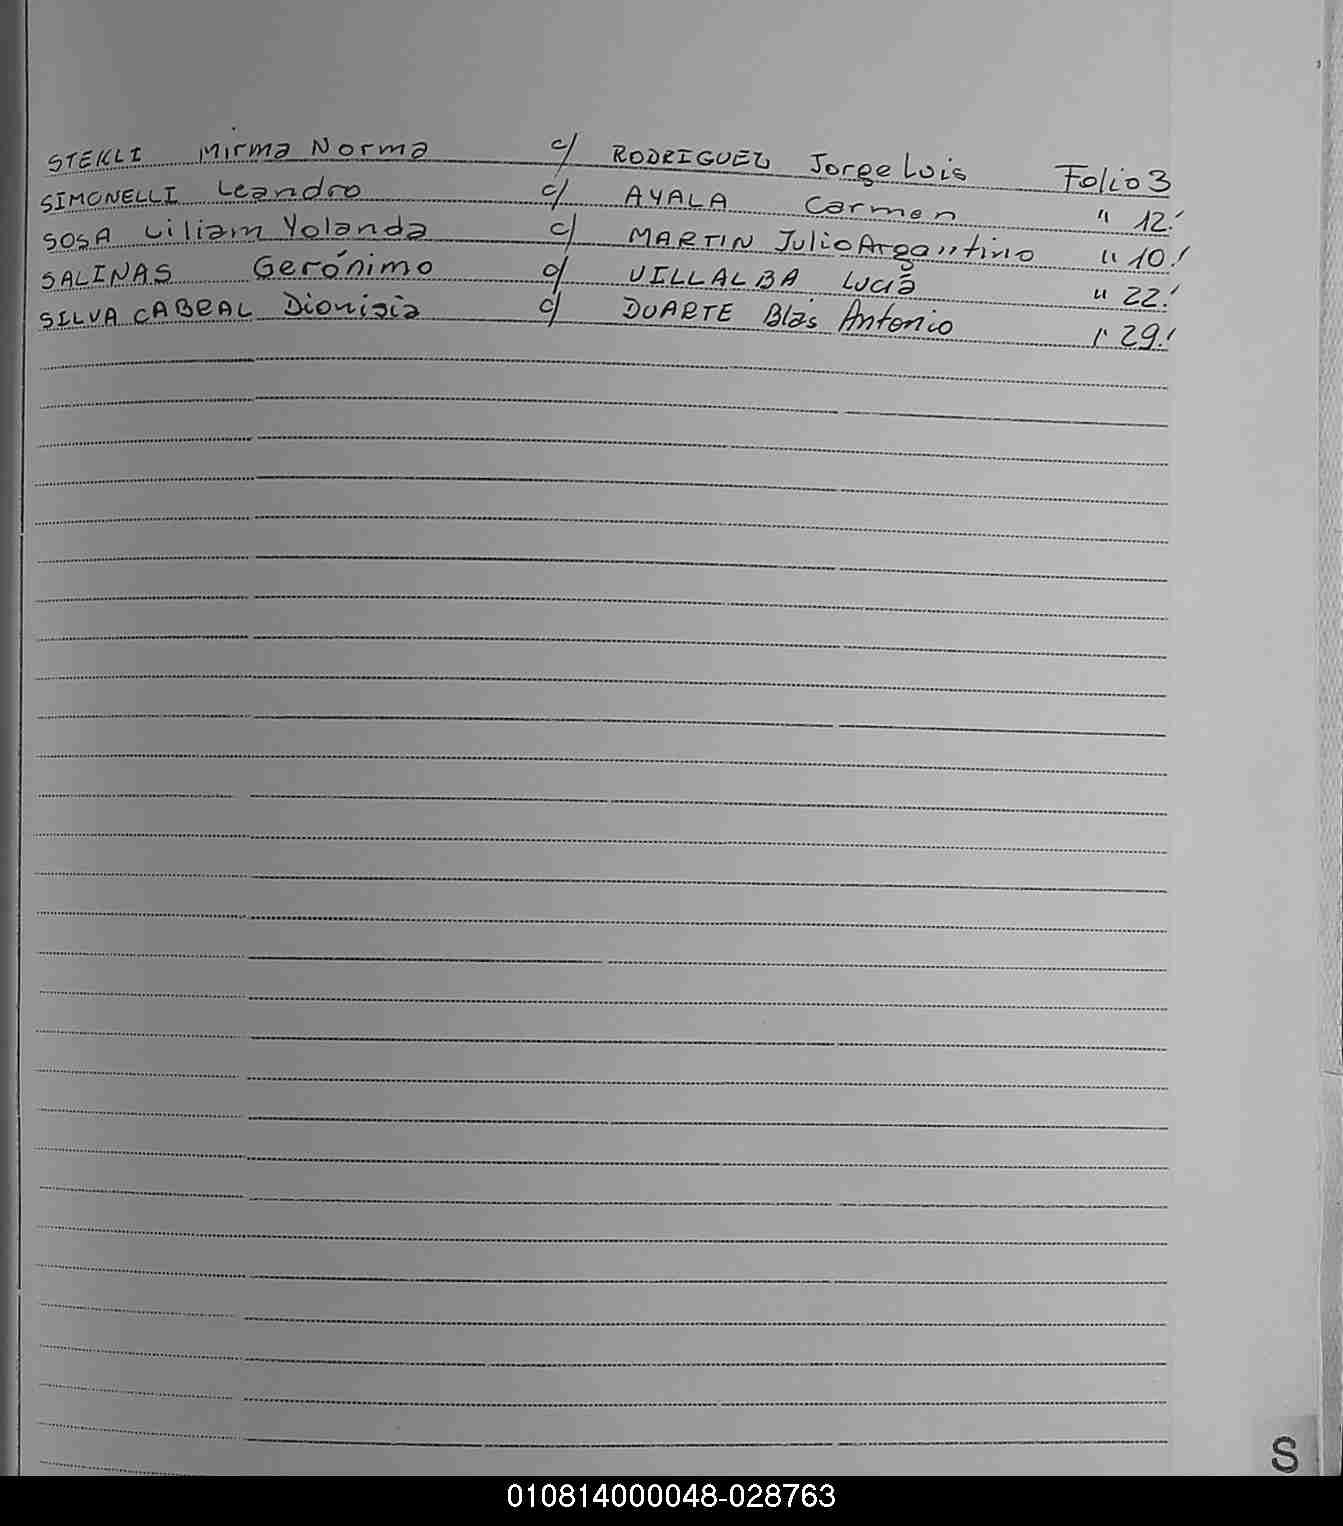 STEKLI Mirma Norma c/ RODRIGUEZ Jorge Luis Folio 3
SIMONELLI Leandro c/ AYALA Carmen " 12!
SOSA Liliam Yolanda c/ MARTIN Julio Argentino " 10!
SALINAS Gerónimo c/ VILLALBA Lucía " 22!
SILVA CABRAL Dionisia c/ DUARTE Blás Antonio " 29!
S
010814000048-028763